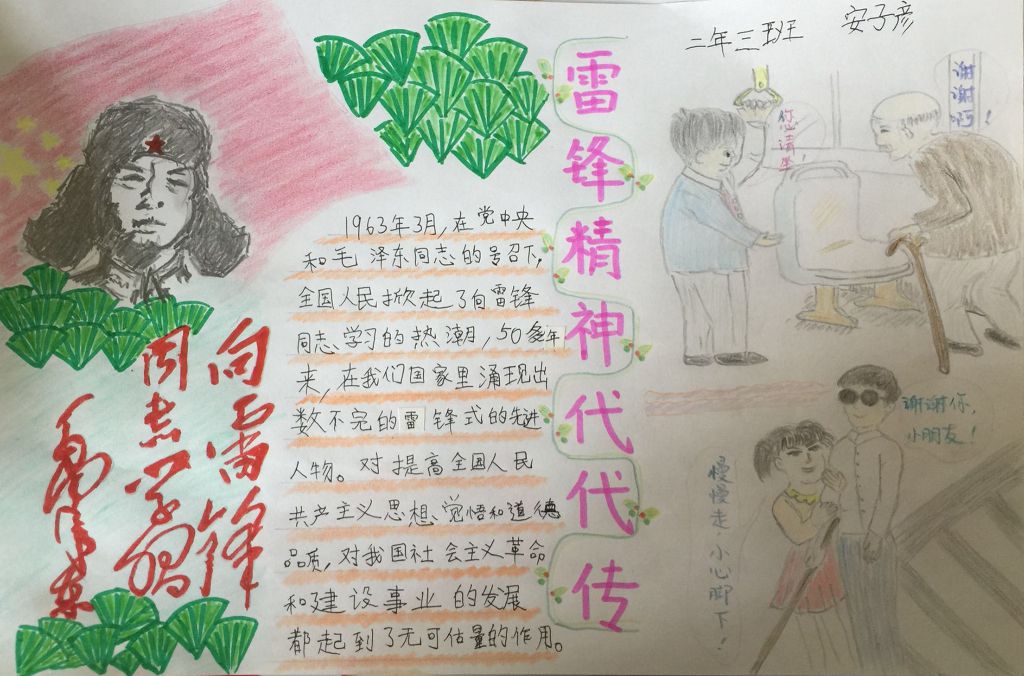 二年三班 安子彦
雷锋精神代代传
1963年3月,在党中央
和毛泽东同志的号召下,
全国人民掀起了向雷锋
同志学习的热潮,50多年
来,在我们国家里涌现出
数不完的雷锋式的先进
人物。对提高全国人民
共产主义思想、觉悟和道德
品质,对我国社会主义革命
和建设事业的发展
都起到了无可估量的作用。
向雷锋
同志学习
毛泽东
您请坐!
谢谢啊!
谢谢你,
小朋友!
慢慢走,小心脚下!